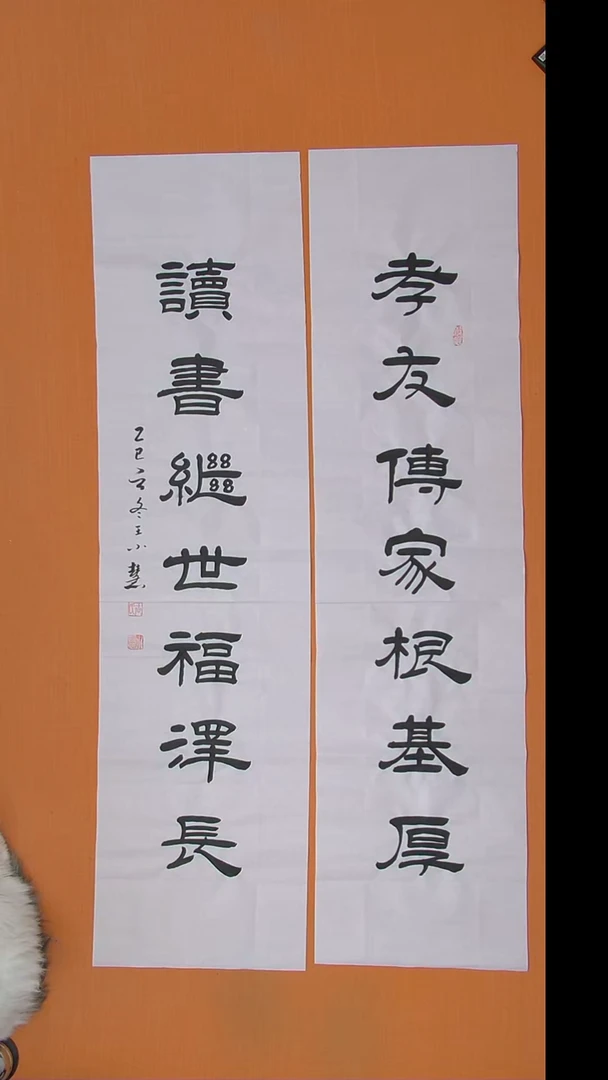 孝友傳家根基厚
讀書繼世福澤長
乙巳之冬王小慧